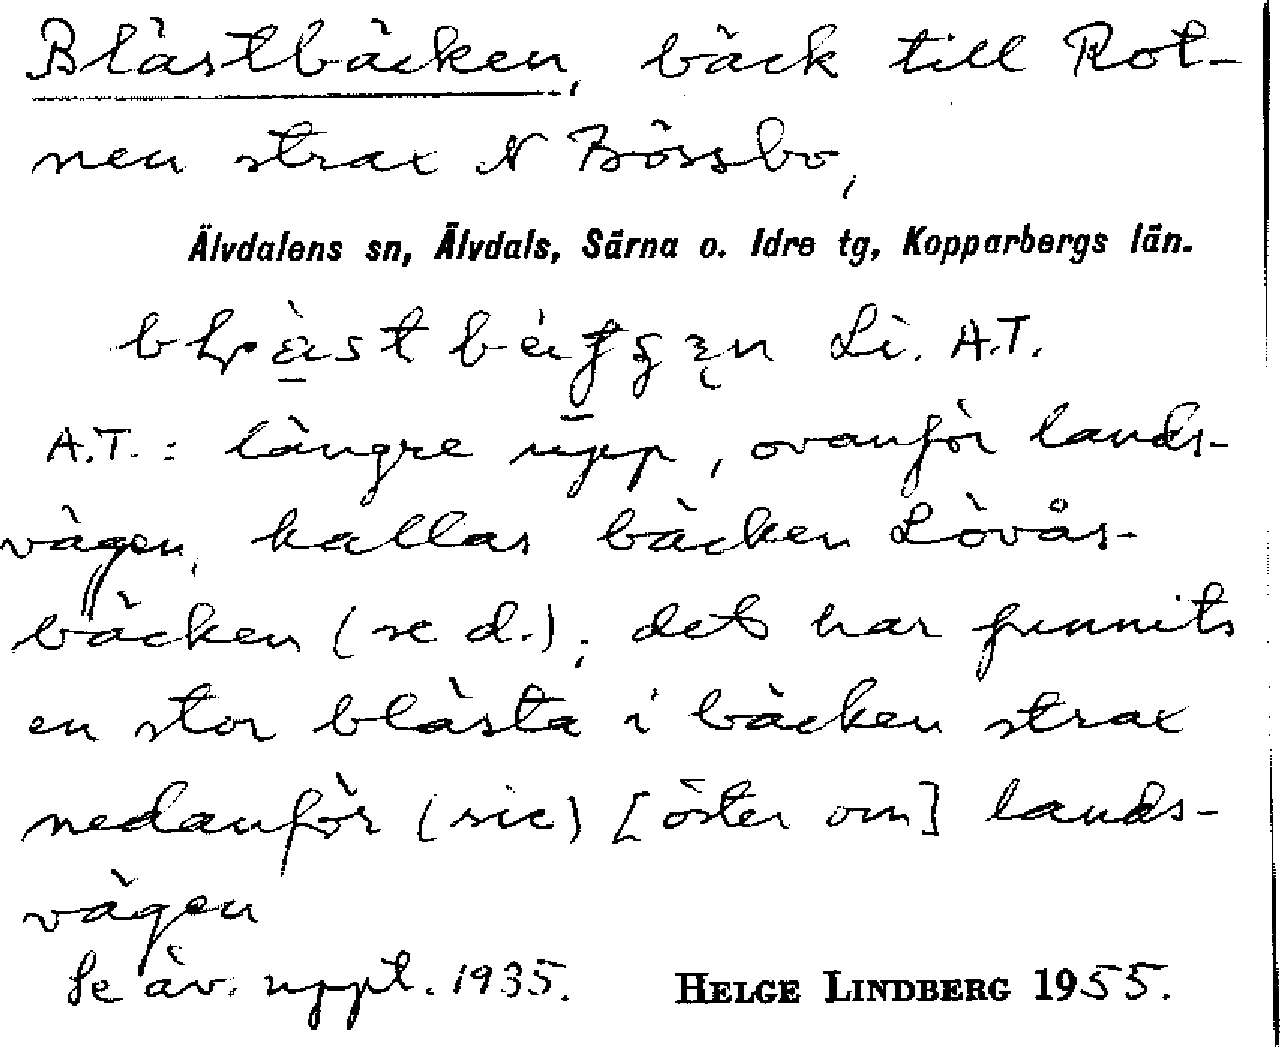 Blästbäcken, bäck till Rot-
nen strax N Bössbo,
Älvdalens sn, Älvdals, Särna o. Idre tg, Kopparbergs län.
Li. A.T.
A.T.: längre upp, ovanför lands-
vägen, kallas bäcken Lövås-
bäcken (se d.); det har funnits
en stor blästa i bäcken strax
nedanför (sic) [öster om] lands-
vägen
Se äv. uppt. 1935. HELGE LINDBERG 1955.